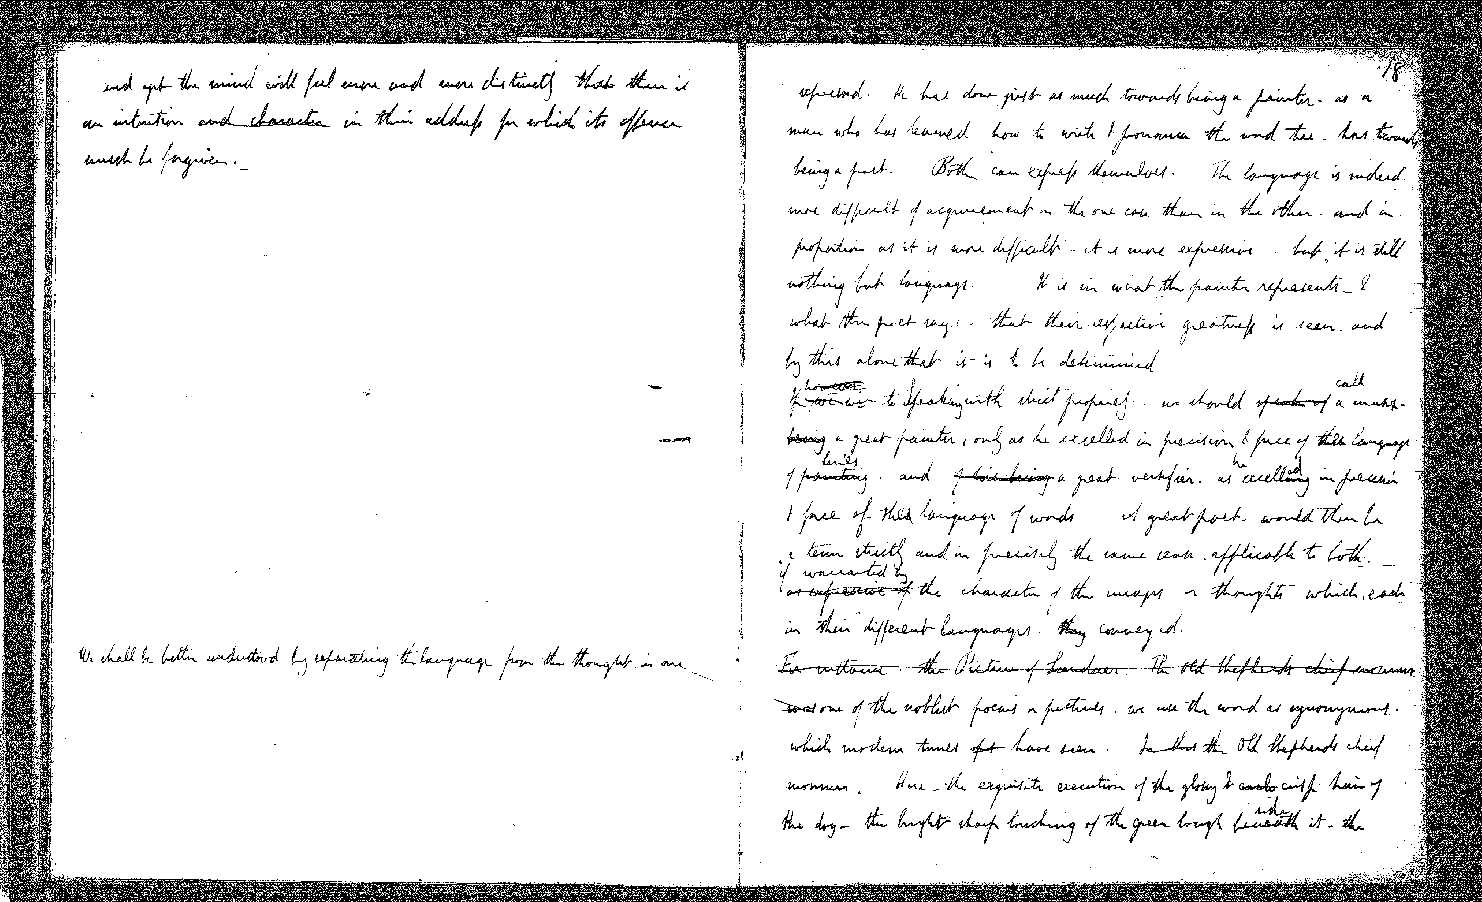 and yet the mind will feel more and more distinctly that there is
an intuition and character in their address for which its offence
must be forgiven._
We shall be better understood by separating the language from the thought in one
18
expressed. He has done just as much towards being a painter - as a
man who has learned how to write & pronounce the word tree - has towards
being a poet. Both can express themselves. The language is indeed
more difficult of acquirement in the one case than in the other. and in
proportion as it is more difficult - it is more expressive - but it is still
nothing but language. It is in what the painter represents - &
what the poet says - that their respective greatness is seen. and
by this alone that it is to be determined
however call
to speaking with strict propriety. we should speak of a master
being a great painter, only as he excelled in precision & force of the language
lines he ed
of painting. and of his being a great versifier. as excelling in precision
& force of the language of words A great poet. would then be
a term strictly and in precisely the same sense. applicable to both. _
if warranted by
as expressive of the character of the images or thoughts which each
in their different languages. they conveyed.
For instance. the Picture of Landseer. The Old Shepherds chief mourner
was one of the noblest poems or pictures. we use the word as synonymous.
which modern times have seen. In that the Old Shepherds chief
mourner. Here - the exquisite execution of the glossy & crisp hair of
side
the dog - the bright sharp touching of the green bough beneath it - the